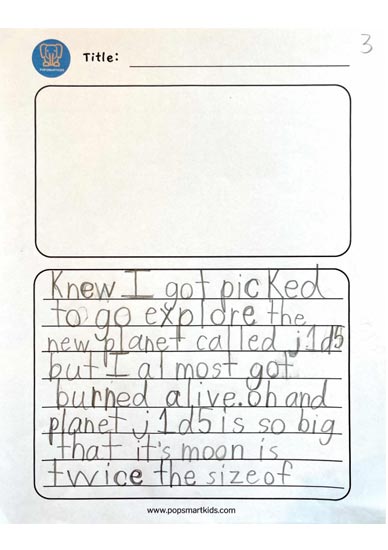 3
POPSMARTKIDS
Title:
Knew I got picked
to go explore the
new planet called j1d5
but I almost got
burned alive. oh and
planet j1d5 is so big
that it's moon is
twice the size of
www.popsmartkids.com